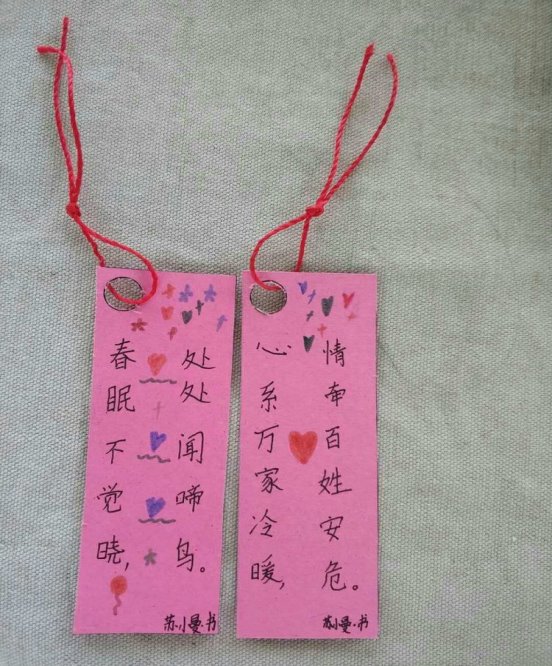 春眠不觉晓，
处处闻啼鸟。
苏小曼·书
心系万家冷暖，
情牵百姓安危。
苏小曼·书